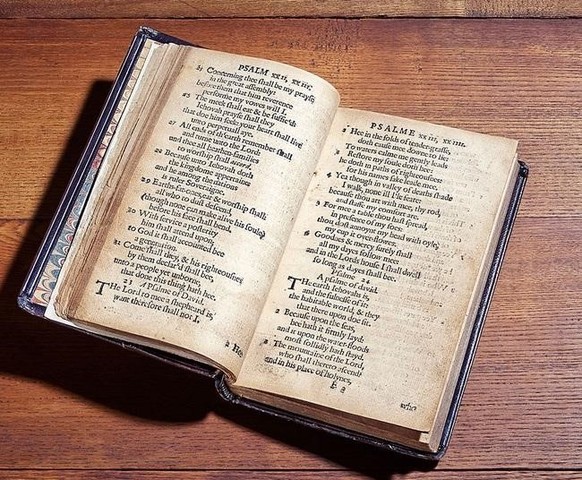 PSALM XXII, XXIII.
25 Concerning thee shall be my prayse
in the great assembly:
before them that him reverence
performe my vowes will I.
The meek shall eat & be suffic'd:
Iehovah prayse shall they
that doe him seek: your heart shall live
unto perpetuall aye.
27 All ends of th'earth remember shall
and turne unto the Lord:
and thee all heathen-families
to worship shall accord.
Because unto Iehovah doth
the kingdome appertaine:
and he among the nations
is ruler Soveraigne.
29 Earths-fat-ones, eat & worship shall:
all who to dust descend,
(though none can make alive his soule)
before his face shall bend.
30 With service a posterity
him shall attend upon;
to God it shall accounted bee
a generation.
31 Come shall they, & his righteousnes
by them declar'd shall bee,
unto a people yet unborne,
that done this thing hath hee.
23 A Psalme of David.
The Lord to mee a shepheard is,
want therefore shall not I.
2 Hee
PSALME XXIII, XXIIII.
2 Hee in the folds of tender-grasse,
doth cause mee downe to lie:
To waters calme me gently leads
3 Restore my soule doth hee:
he doth in paths of righteousnes:
for his names sake leade mee.
4 Yea though in valley of deaths shade
I walk, none ill I'le feare:
because thou art with mee, thy rod,
and staffe my comfort are.
5 For mee a table thou hast spread,
in presence of my foes:
thou dost annoynt my head with oyle,
my cup it over-flowes.
6 Goodnes & mercy surely shall
all my dayes follow mee:
and in the Lords house I shall dwell
so long as dayes shall bee.
Psalme 24
A psalme of david.
The earth Iehovahs is,
and the fulnesse of it:
the habitable world, & they
that there upon doe sit.
2 Because upon the seas,
hee hath it firmly layd:
and it upon the water-floods
most sollidly hath stayd.
3 The mountaine of the Lord,
who shall thereto ascend?
and in his place of holynes,
E 2
who